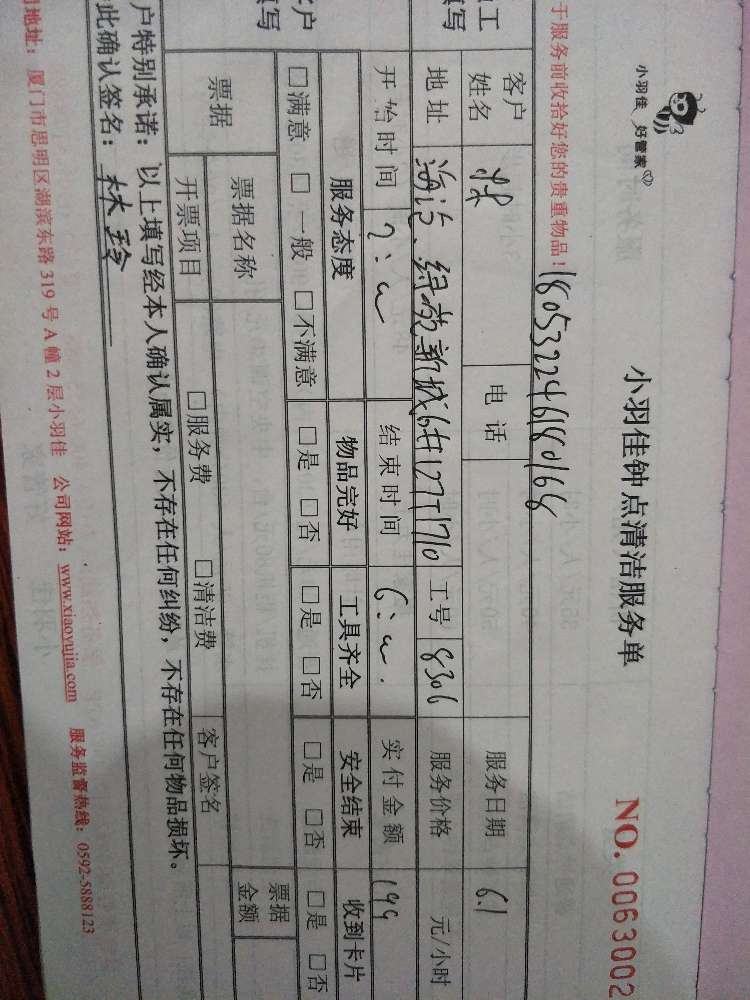 小羽佳 好管家
小羽佳钟点清洁服务单 NO. 0063002
于服务前收拾好您的贵重物品！180532246180168
工 填写 客户姓名 电话 服务日期 6.1
地址 海沧、绿苑新城 1710 工号 8306 服务价格 元/小时
开始时间 2: 结束时间 6: 实付金额 199
客户 填写 服务态度 物品完好 工具齐全 安全结束 收到卡片
□满意 □一般 □不满意 □是 □否 □是 □否 □是 □否 □是 □否
票据 票据名称 票据金额
开票项目 □服务费 □清洁费 客户签名
户特别承诺：以上填写经本人确认属实，不存在任何纠纷，不存在任何物品损坏。
此确认签名：林珍
司地址：厦门市思明区湖滨东路319号A幢2层小羽佳 公司网站：www.xiaoyujia.com 服务监督热线：0592-5888123